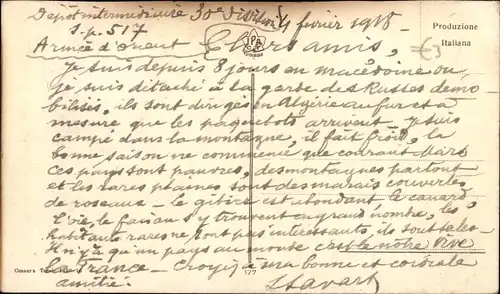 Depot intermédiaire 30e Division 4 février 1918
S.p. 517
Armée d'orient Chers amis,
Produzione
Italiana
Je suis depuis 8 jours en macédoine ou
je suis détaché à la garde des Russes demo
bilisés, ils sont dirigés en Algérie au fur et à
mesure que les paquebots arrivent. Je suis
campé dans la montagne, il fait froid, la
bonne saison ne commence que courant Mars
ces pays sont pauvres, des montagnes partout
et les rares plaines sont des marais couverts
de roseaux - le gibier est abondant, le canard,
l'oie, le faisan s'y trouvent en grand nombre, les
habitants rares ne sont pas intéressants, ils sont sales.
Il n'y a qu'un pays au monde c'est le nôtre Vive
la France - Croyez à ma bonne et cordiale
amitié.
Censura
177